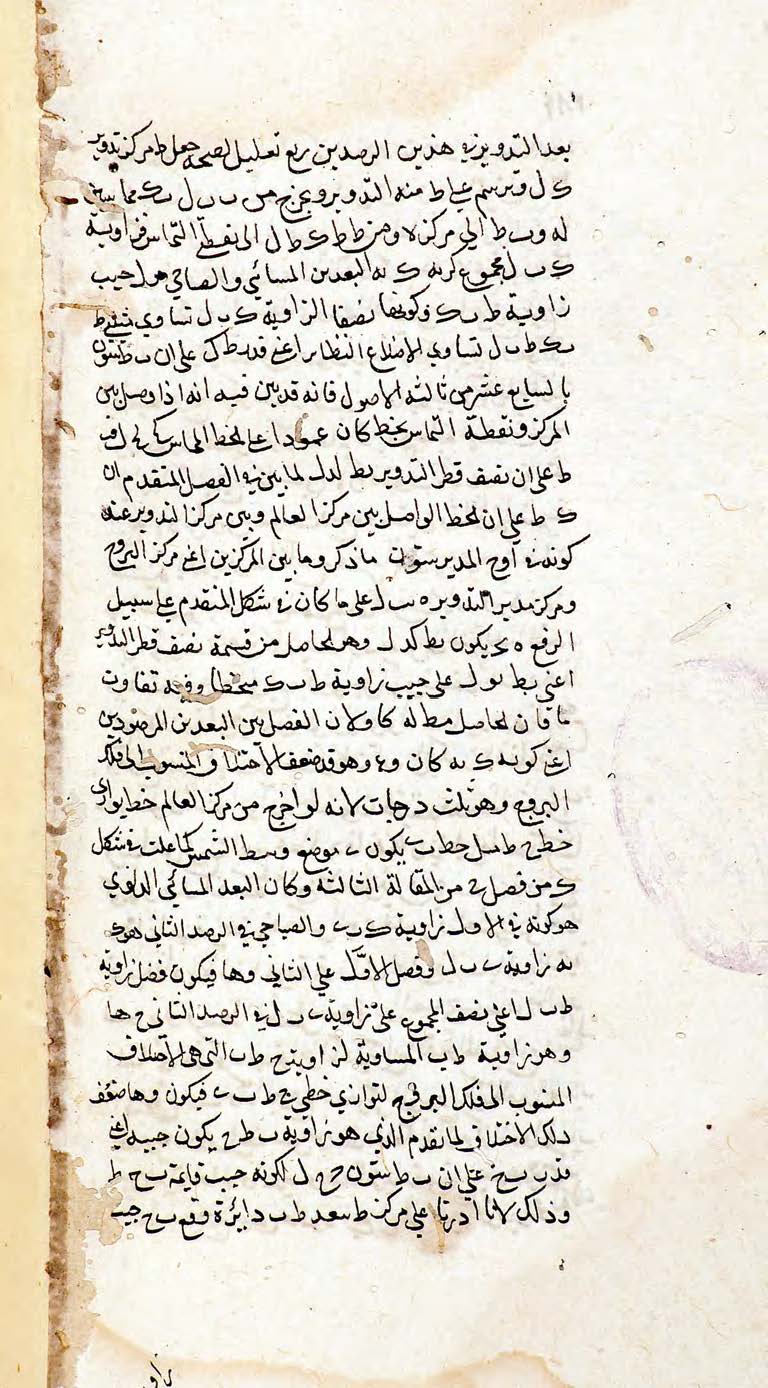 بعد التدوير في هذين الرصدين ربع تعليل لصحه جعل ط مركز تدوير
ك ل ونرسم على ط منه التدوير ويخرج من ب ب ل ب ك مماسين
له وب ط الى مركزه ومن ط ط ك ط ل الى نقطتي التماس فزاوية
ك ب ل مجموع كونه ك نه البعدين المسائي والصباحي هو ل جيب
زاوية ط ب ك وكونها نصفا لزاوية ك ب ل تساوي مثلثي ط
ب ك ط ب ل لتساوي الاضلاع النظائر اعني قدر ط ك على ان ب ط ستون
بالسابع عشر من ثالثة الاصول فانه قد بين فيه انه اذا وصل بين
المركز ونقطة التماس بخط كان عمودا على الخط المماس
ط على ان نصف قطر التدوير بط لدل لما بين في الفصل المتقدم ان
ك ط على ان الخط الواصل بين مركز العالم وبين مركز التدوير عند
كونه في اوج المدير ستون ما ذكر وما بين المركزين اعني مركز البروج
ومركز مدير التدوير ه ب ل على ما كان في شكل المتقدم على سبيل
الرفع ه يكون بط كدل وهو الحاصل من قسمة نصف قطر التدوير
اعني بط نول على جيب زاوية ط ب ك منحطا وفيه تفاوت
ما فان الحاصل مط له كا ولان الفصل بين البعدين المرصودين
اعني كونه ك نه كان وء وهو قدر ضعف الاختلاف المنسوب الى فلك
البروج وهو ثلث درجات لانه لو اخرج من مركز العالم خط يوازي
خط ح ط مثل خط ب ے يكون ے موضع وسط الشمس كما علمت في شكل
ك من فصل ے من المقالة الثالثة وكان البعد المسائي الذي
هو كونه في الاول زاوية ك ب ے والصباحي في الرصد الثاني هو ك
نه زاوية ے ب ل وفضل الاول على الثاني وها فيكون فضل زاوية
ط ب ل اعني نصف المجموع على زاوية ے ب ل في الرصد الثاني ح ها
وهو زاوية ط ب ے المساوية لزاوية ح ط ب التي هي الاختلاف
المنسوب الى فلك البروج لتوازي خطي ح ط ب ے فيكون وها ضعف
ذلك الاختلاف لما تقدم الذي هو زاوية ب ط ح يكون جيبه اعني
قدر ب ح على ان ب ط ستون ح ل لكونه جيب قايمة ب ح ط
وذلك لانا اذا ادرنا على مركز ط ببعد ط ب دايرة وقع ب ح جيب